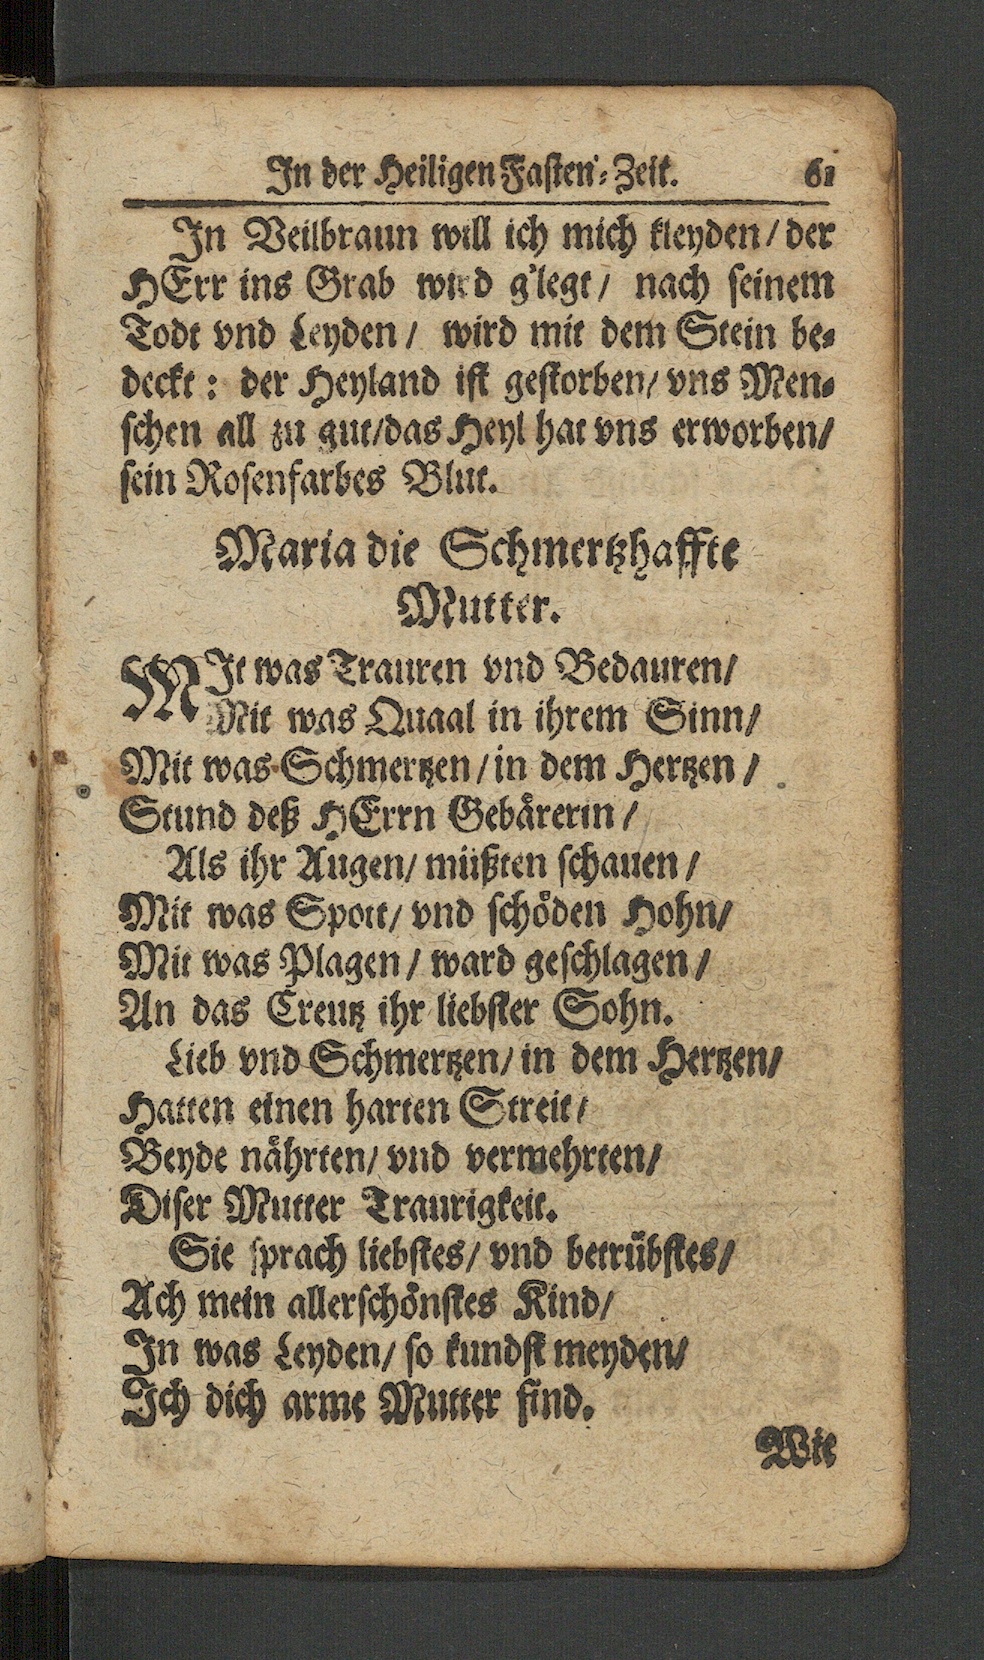 In der Heiligen Fasten-Zeit. 61
In Veilbraun will ich mich kleyden/ der
HErr ins Grab wird g'legt/ nach seinem
Todt vnd Leyden/ wird mit dem Stein be-
deckt: der Heyland ist gestorben/ vns Men-
schen all zu gut/das Heyl hat vns erworben/
sein Rosenfarbes Blut.
Maria die Schmertzhaffte
Mutter.
MIt was Trauren vnd Bedauren/
Mit was Quaal in ihrem Sinn/
Mit was Schmertzen/in dem Hertzen/
Stund deß HErrn Gebårerin/
Als ihr Augen/ müßten schauen/
Mit was Spott/ vnd schöden Hohn/
Mit was Plagen/ ward geschlagen/
An das Creutz ihr liebster Sohn.
Lieb vnd Schmertzen/ in dem Hertzen/
Hatten einen harten Streit/
Beyde nåhrten/ vnd vermehrten/
Diser Mutter Traurigkeit.
Sie sprach liebstes/ vnd betrübstes/
Ach mein allerschönstes Kind/
In was Leyden/ so kundst meyden/
Ich dich arme Mutter find.
Wie